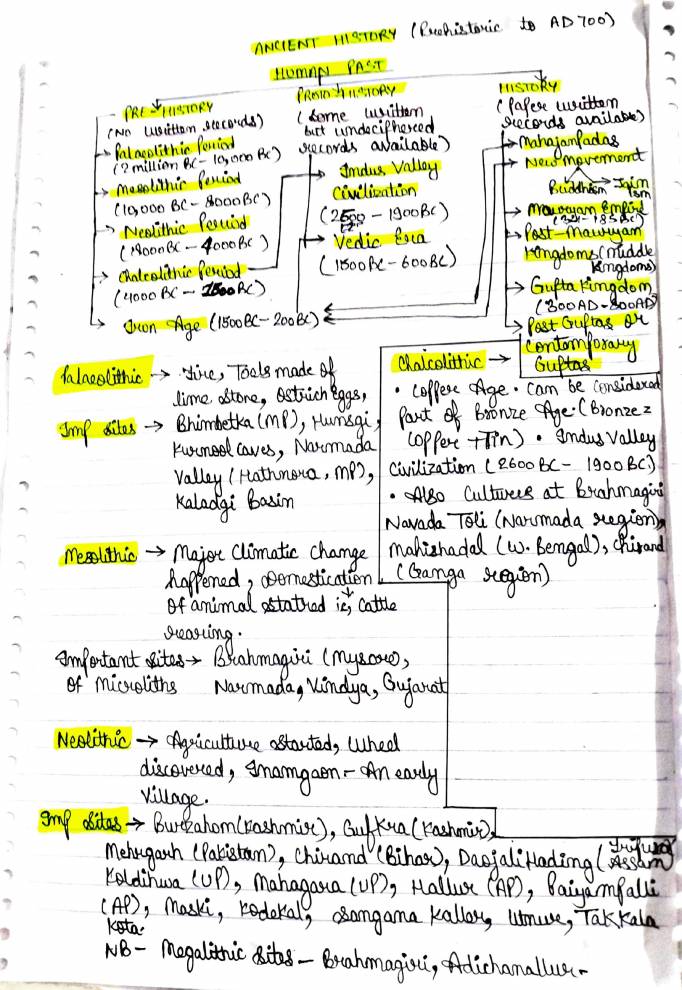 ANCIENT HISTORY (Prehistoric to AD 700)
HUMAN PAST
PRE-HISTORY
(No written records)
Palaeolithic Period
(2 million BC - 10,000 BC)
Mesolithic Period
(10,000 BC - 8000 BC)
Neolithic Period
(8000 BC - 4000 BC)
Chalcolithic Period
(4000 BC - 1500 BC)
Iron Age (1500 BC - 200 BC)
PROTO-HISTORY
(Some written
but undeciphered
records available)
Indus Valley
Civilization
(2500 - 1900 BC)
Vedic Era
(1500 BC - 600 BC)
HISTORY
(Paper written
records available)
Mahajanpadas
New Movement
Buddhism Jain
ism
Mauryan Empire
Post-Mauryan
Kingdoms (Middle
Kingdoms)
Gupta Kingdom
(300 AD - 800 AD)
Post Guptas or
Contomporary
Guptas
Palaeolithic → Fire, Tools made of
lime stone, Ostrich eggs,
Imp sites → Bhimbetka (MP), Hunsgi,
Kurnool caves, Narmada
Valley (Hathnora, MP),
Kaladgi Basin
Chalcolithic →
• Copper Age • Can be considered
part of Bronze Age. (Bronze =
Copper + Tin) • Indus Valley
Civilization (2600 BC - 1900 BC)
• Also Cultures at Brahmagiri
Navada Toli (Narmada region),
Mahishadal (W. Bengal), Chirand
(Ganga region)
Mesolithic → Major Climatic Change
happened, Domestication
of animal statred ie, Cattle
rearing.
Important sites → Brahmagiri (Mysore),
of Microliths Narmada, Vindya, Gujarat
Neolithic → Agriculture started, Wheel
discovered, Inamgaon - An early
Village.
Imp sites → Burzahom (Kashmir), Gufkra (Kashmir),
Mehrgarh (Pakistan), Chirand (Bihar), Daojali Hading (Tripura/Assam
Koldihwa (UP), Mahagara (UP), Hallur (AP), Paiyampalli
(AP), Maski, Kodekal, Sangana Kaller, Utnur, Tak Kala
Kota.
NB - Megalithic Sites - Brahmagiri, Adichanallur -